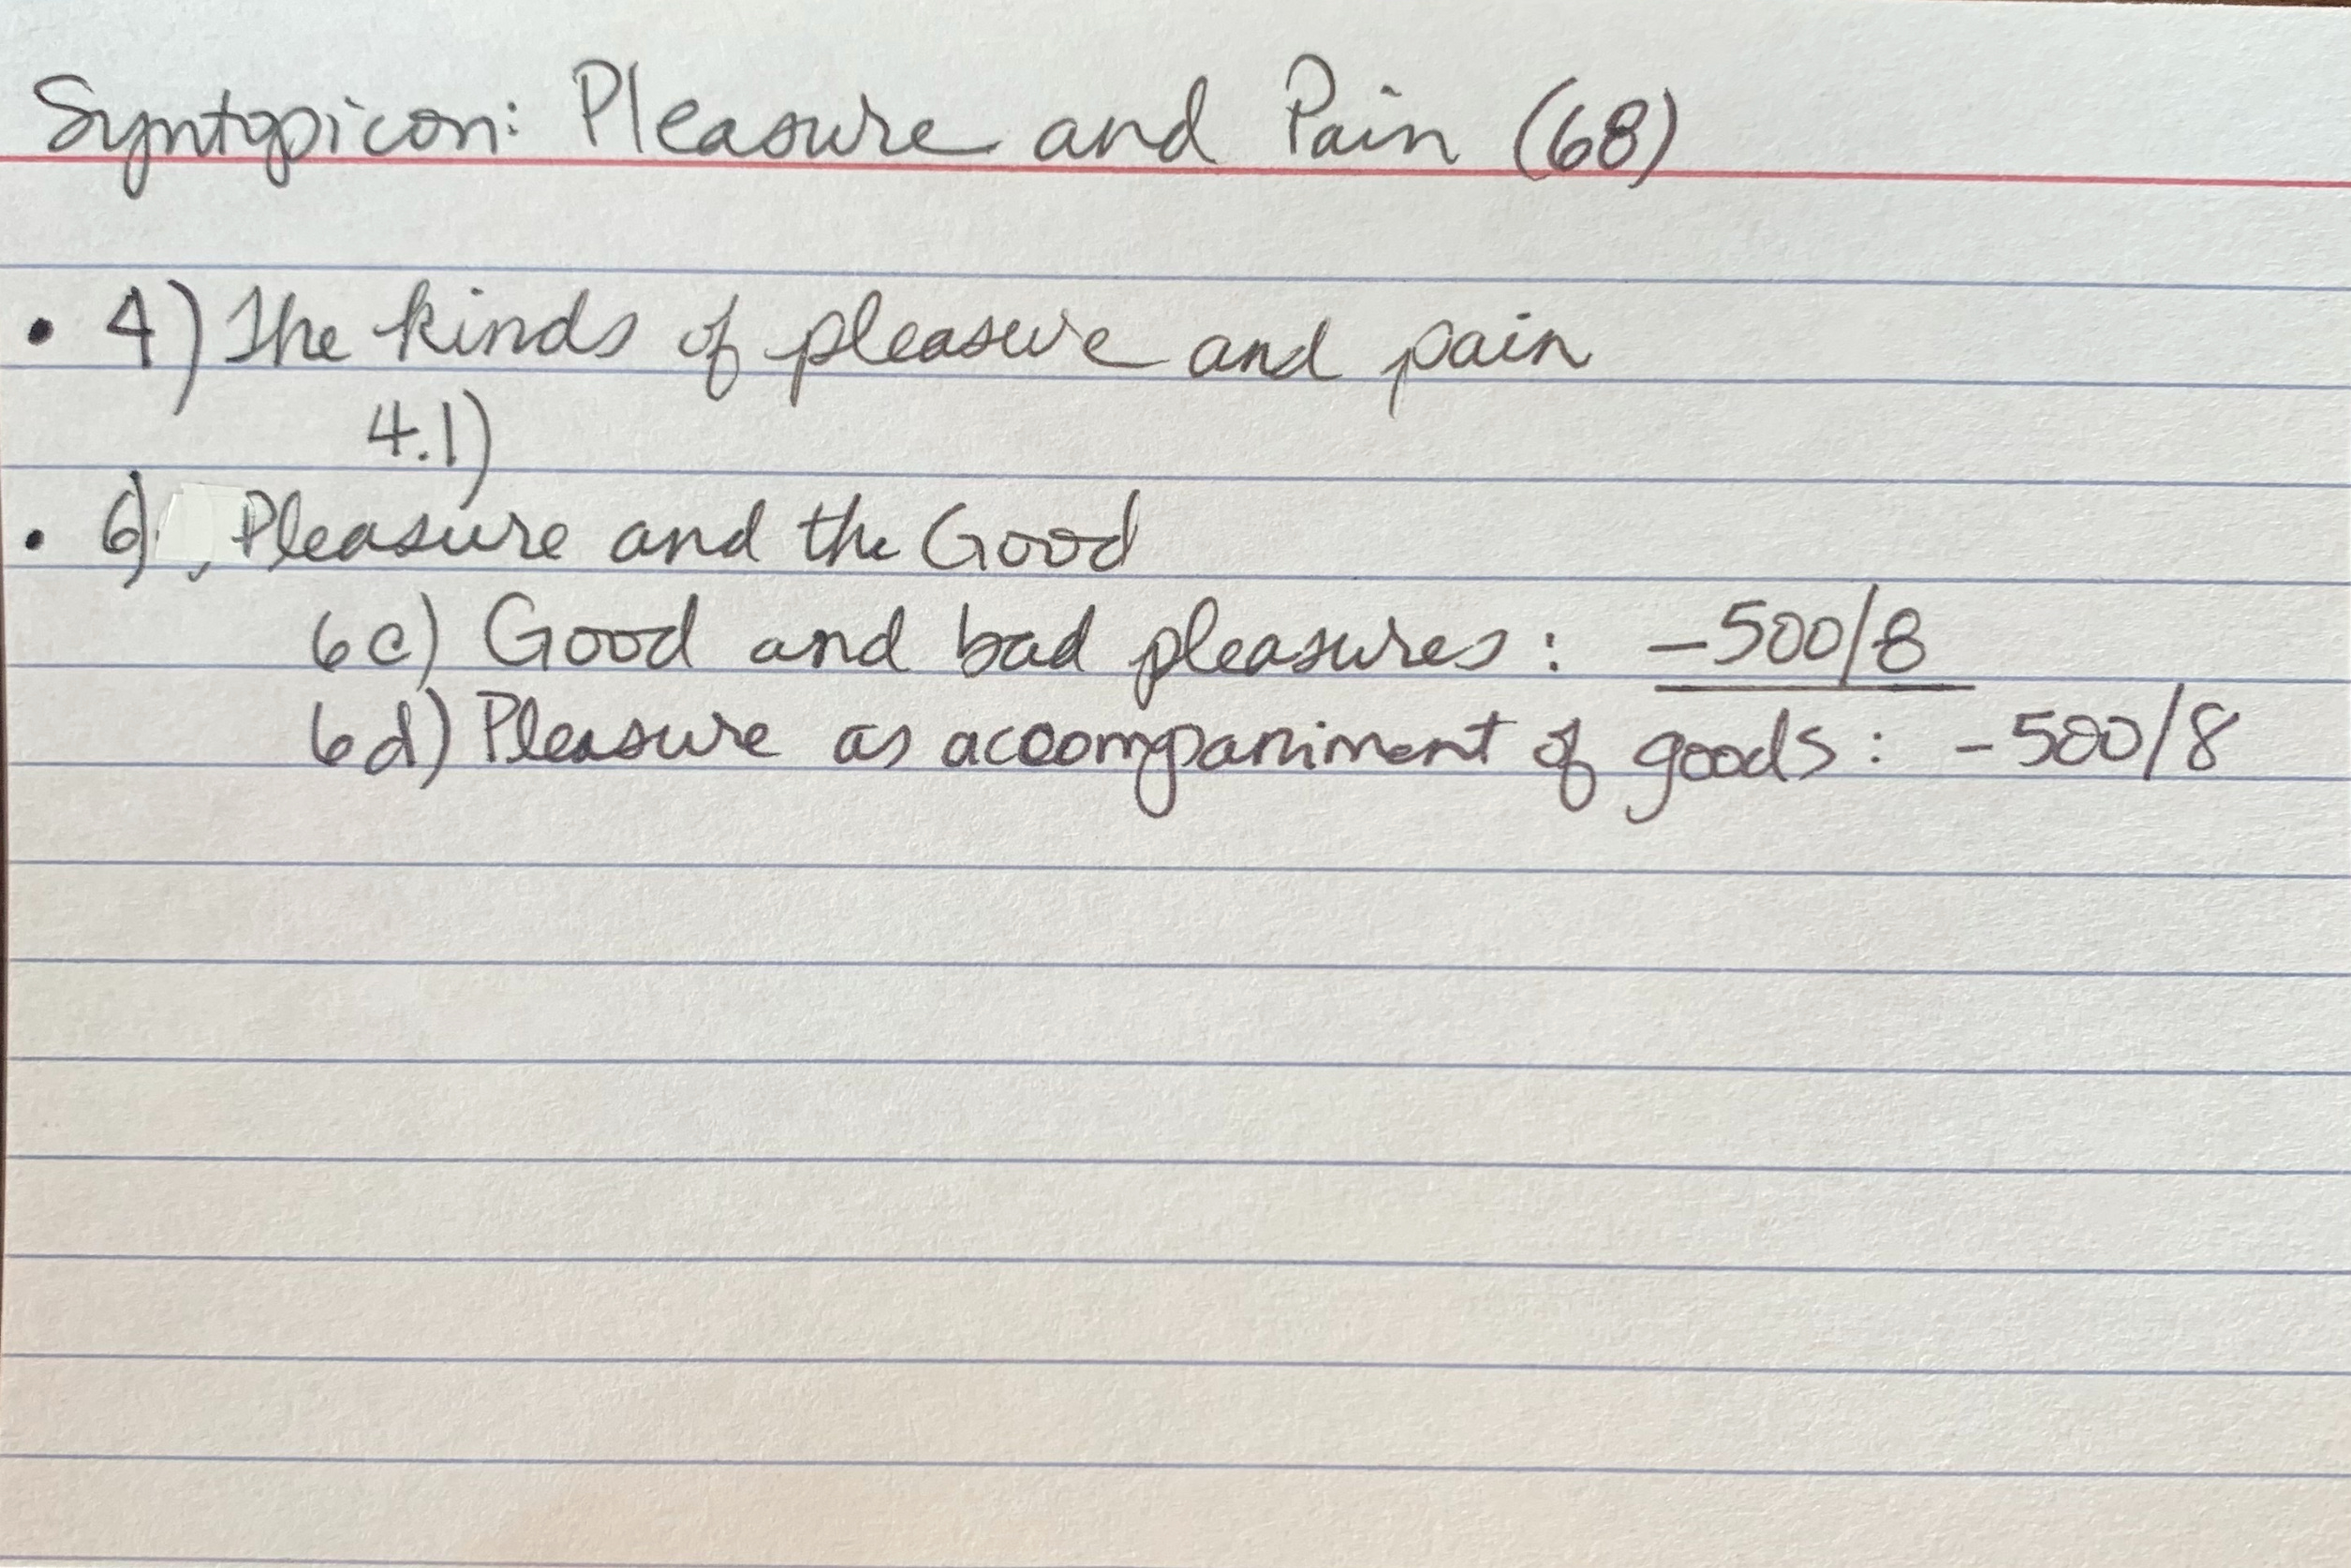 Syntopicon: Pleasure and Pain (68)
• 4) The kinds of pleasure and pain
4.1)
• 6) Pleasure and the Good
6c) Good and bad pleasures: -500/8
6d) Pleasure as accompaniment of goods: -500/8